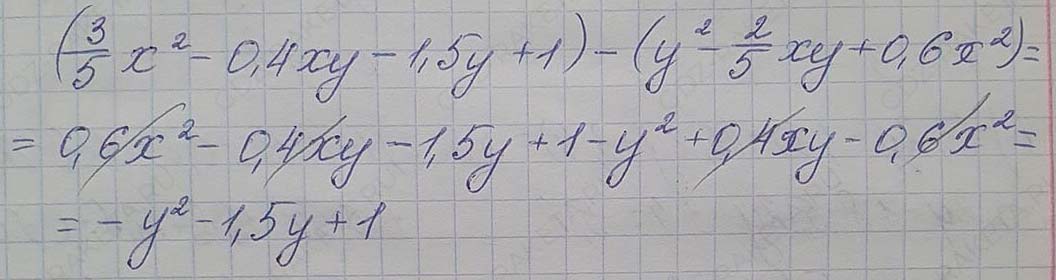 (3/5 x² - 0,4xy - 1,5y + 1) - (y² - 2/5 xy + 0,6x²) =
= 0,6x² - 0,4xy - 1,5y + 1 - y² + 0,4xy - 0,6x² =
= - y² - 1,5y + 1